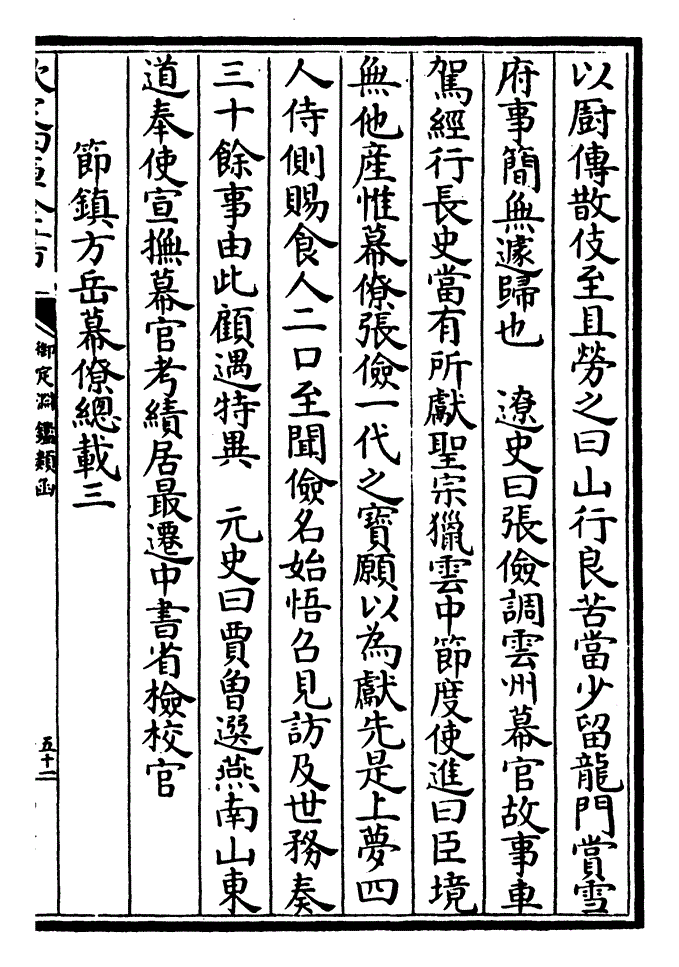 以厨傳散伎至且勞之曰山行良苦當少留龍門賞雪
府事簡無遽歸也　遼史曰張儉調雲州幕官故事車
駕經行長史當有所獻聖宗獵雲中節度使進曰臣境
無他産惟幕僚張儉一代之寶願以為獻先是上夢四
人侍側賜食人二口至聞儉名始悟召見訪及世務奏
三十餘事由此顧遇特異　元史曰賈魯選燕南山東
道奉使宣撫幕官考績居最遷中書省檢校官
節鎮方岳幕僚總載三
御定淵鑑類函
五十二